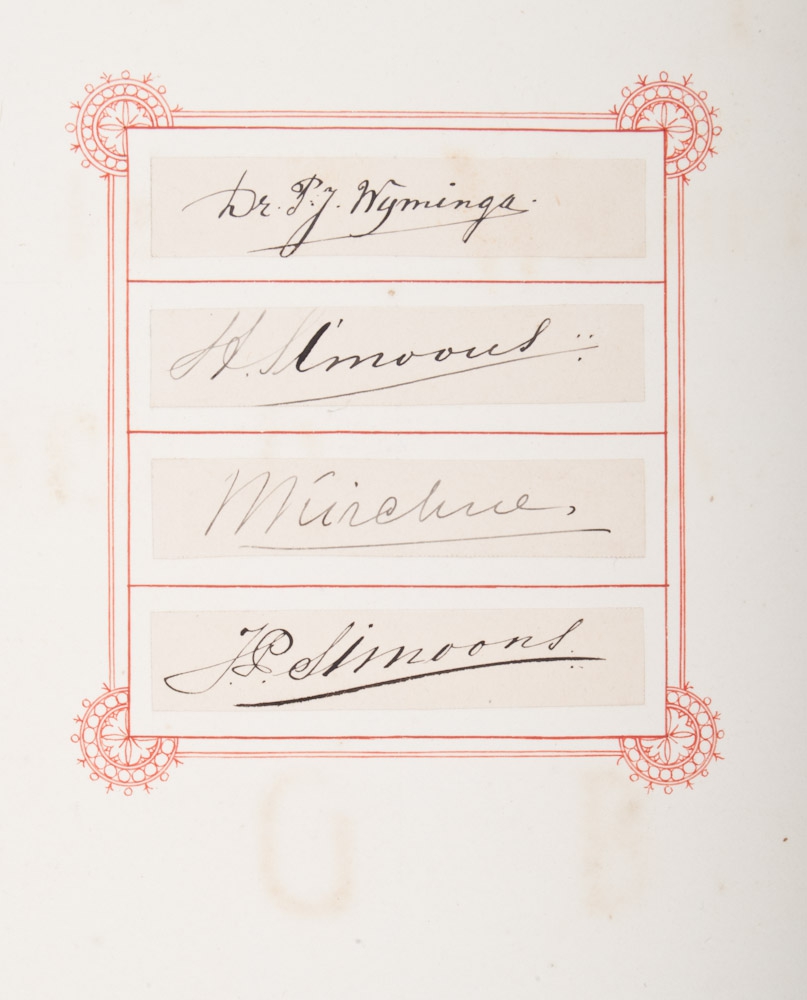 Dr. P. J. Wyminga.
H. Simoons
J. P. Simoons